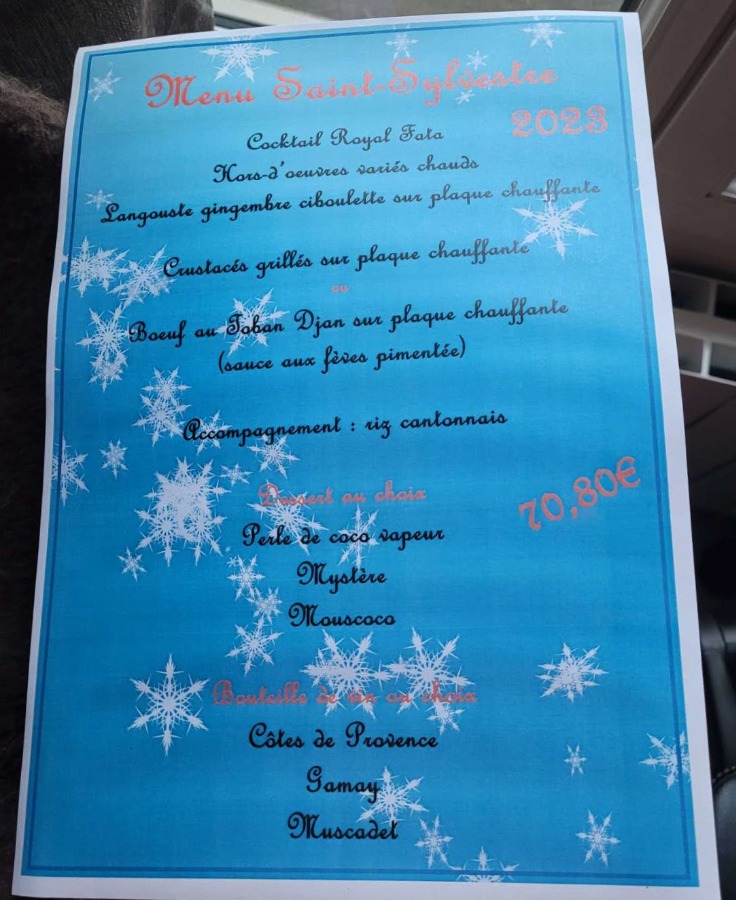 Menu Saint-Sylvestre
2023
Cocktail Royal Fata
Hors-d'oeuvres variés chauds
Langouste gingembre ciboulette sur plaque chauffante
Crustacés grillés sur plaque chauffante
ou
Boeuf au Toban Djan sur plaque chauffante
(sauce aux fèves pimentée)
Accompagnement : riz cantonnais
Dessert au choix
70,80€
Perle de coco vapeur
Mystère
Mouscoco
Bouteille de vin au choix
Côtes de Provence
Gamay
Muscadet